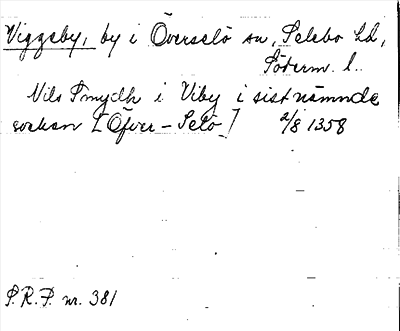 Viggeby, by i Överselö sn, Selebo hd,
Söderm. l.
Nils Smydh i Viby i sistnämnde
socken [Öfver-Selö] 2/8 1358
S.R.P. nr. 381